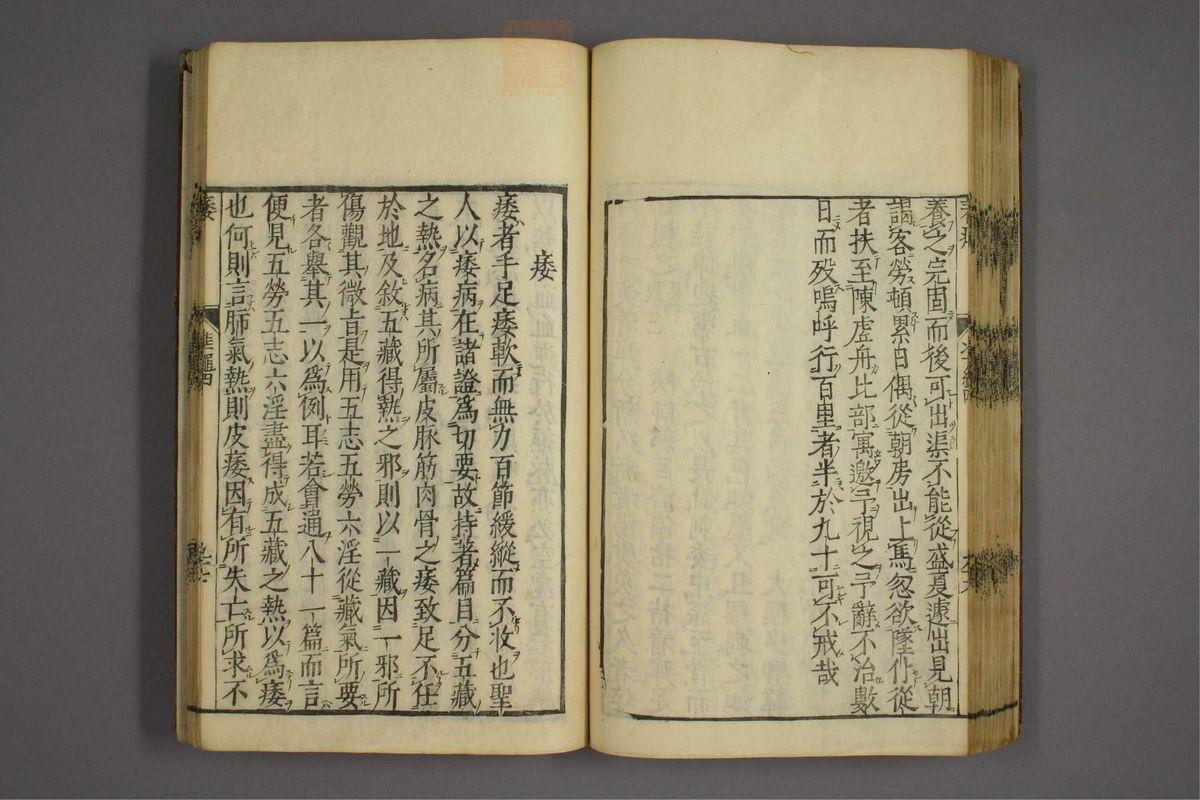 養之完固而後可出渠不能從盛夏遽出見朝
謁客勞頓累日偶從朝房出上馬忽欲墜仆從
者扶至陳虛舟比部寓邀予視之予辭不治數
日而歿嗚呼行百里者半於九十可不戒哉
痿
痿者手足痿軟而無力百節緩縱而不收也聖
人以痿病在諸證為切要故持著篇目分五藏
之熱名病其所屬皮脉筋肉骨之痿致足不任
於地及敘五藏得熱之邪則以一藏因一邪所
傷觀其微旨是用五志五勞六淫從藏氣所要
者各舉其一以為例耳若會通八十一篇而言
便見五勞五志六淫盡得成五藏之熱以為痿
也何則言肺氣熱則皮痿因有所失亡所求不
痿